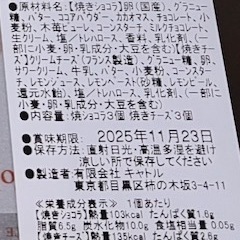 ●原材料名:【焼きショコラ】卵(国産)、グラニュー
糖、バター、ココアパウダー、カカオマス、チョコレート、小
麦粉、木苺ピューレ、コーンスターチ、ミルクチョコレート、
生クリーム、塩/トレハロース、香料、乳化剤、(一
部に小麦・卵・乳成分・大豆を含む)【焼きチー
ズ】クリームチーズ(フランス製造)、グラニュー糖、卵、
サワークリーム、牛乳、バター、小麦粉、コーンスター
チ、レモンジュース、レモンペースト(砂糖、レモンピール、
還元水飴)、塩/トレハロース、乳化剤、(一部に小
麦・卵・乳成分・大豆を含む)
●内容量:焼きショコラ3個 焼きチーズ3個
●賞味期限: 2025年11月23日
●保存方法:直射日光・高温多湿を避け
涼しい所で保存してください
●製造者:有限会社 キャトル
東京都目黒区柿の木坂3-4-11
≪栄養成分表示≫ 1個あたり
【焼きショコラ】熱量103kcal たんぱく質1.6g
脂質6.5g 炭水化物10.0g 食塩相当量0.05g
【焼きチーズ】熱量135kcal たんぱく質2.6g